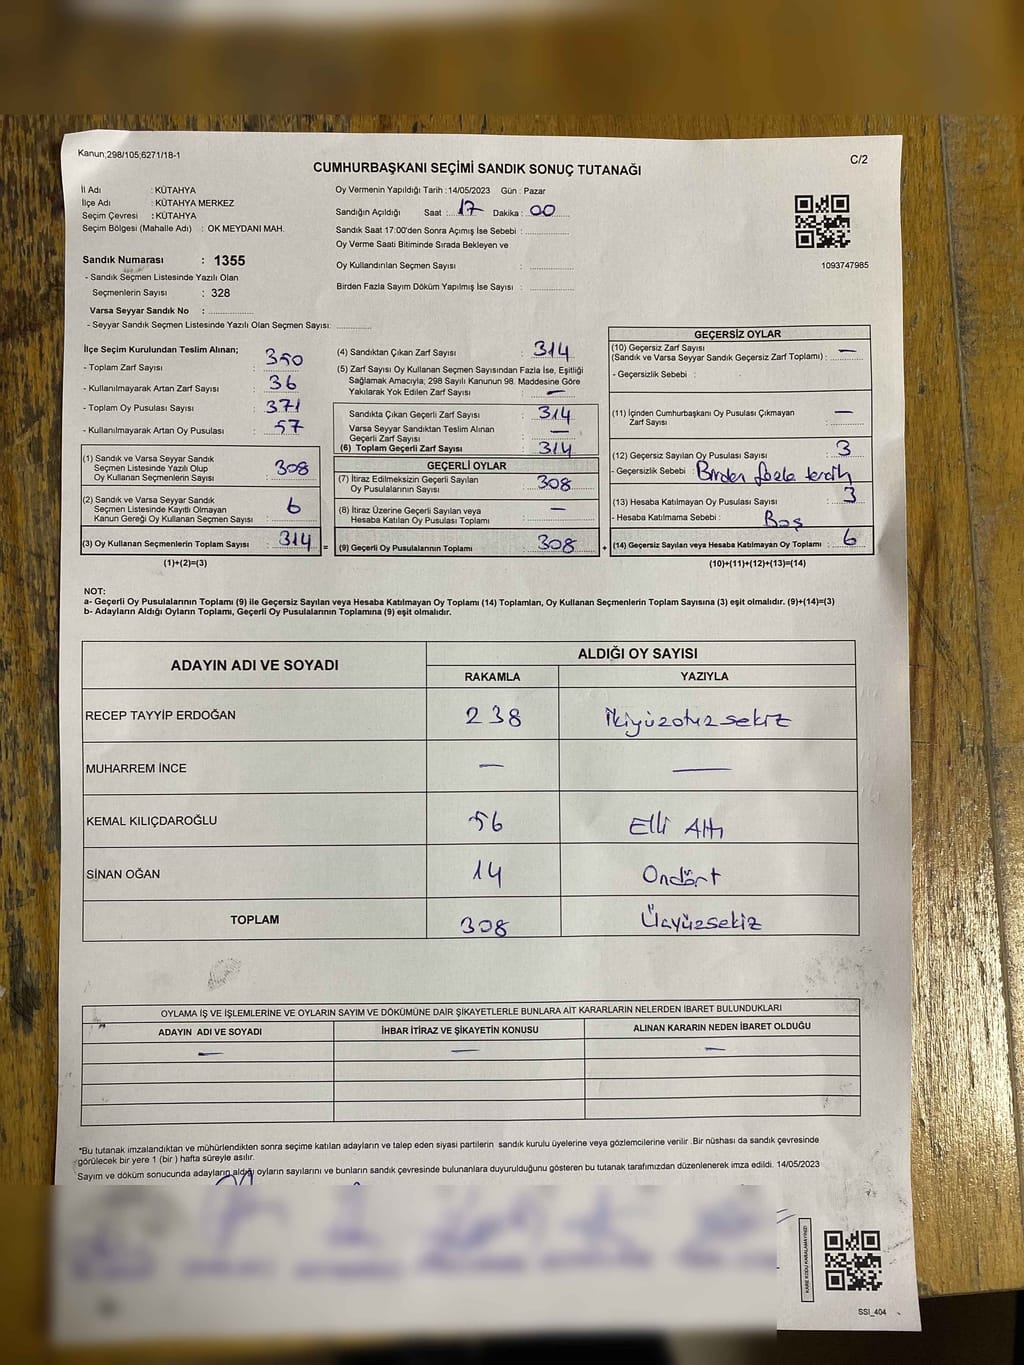 Kanun,298/105;6271/18-1
C/2
CUMHURBAŞKANI SEÇİMİ SANDIK SONUÇ TUTANAĞI
İl Adı : KÜTAHYA
İlçe Adı : KÜTAHYA MERKEZ
Seçim Çevresi : KÜTAHYA
Seçim Bölgesi (Mahalle Adı) : OK MEYDANI MAH.
Sandık Numarası : 1355
- Sandık Seçmen Listesinde Yazılı Olan
Seçmenlerin Sayısı : 328
Varsa Seyyar Sandık No :
- Seyyar Sandık Seçmen Listesinde Yazılı Olan Seçmen Sayısı:
Oy Vermenin Yapıldığı Tarih : 14/05/2023 Gün : Pazar
Sandığın Açıldığı Saat : 17 Dakika : 00
Sandık Saat 17:00'den Sonra Açımış İse Sebebi :
Oy Verme Saati Bitiminde Sırada Bekleyen ve
Oy Kullandırılan Seçmen Sayısı :
Birden Fazla Sayım Döküm Yapılmış İse Sayısı :
1093747985
İlçe Seçim Kurulundan Teslim Alınan;
- Toplam Zarf Sayısı : 350
- Kullanılmayarak Artan Zarf Sayısı : 36
- Toplam Oy Pusulası Sayısı : 371
- Kullanılmayarak Artan Oy Pusulası : 57
(1) Sandık ve Varsa Seyyar Sandık
Seçmen Listesinde Yazılı Olup
Oy Kullanan Seçmenlerin Sayısı : 308
(2) Sandık ve Varsa Seyyar Sandık
Seçmen Listesinde Kayıtlı Olmayan
Kanun Gereği Oy Kullanan Seçmen Sayısı : 6
(3) Oy Kullanan Seçmenlerin Toplam Sayısı : 314
(1)+(2)=(3)
(4) Sandıktan Çıkan Zarf Sayısı : 314
(5) Zarf Sayısı Oy Kullanan Seçmen Sayısından Fazla İse, Eşitliği
Sağlamak Amacıyla; 298 Sayılı Kanunun 98. Maddesine Göre
Yakılarak Yok Edilen Zarf Sayısı : —
Sandıkta Çıkan Geçerli Zarf Sayısı : 314
Varsa Seyyar Sandıktan Teslim Alınan
Geçerli Zarf Sayısı : —
(6) Toplam Geçerli Zarf Sayısı : 314
GEÇERLİ OYLAR
(7) İtiraz Edilmeksizin Geçerli Sayılan
Oy Pusulalarının Sayısı : 308
(8) İtiraz Üzerine Geçerli Sayılan veya
Hesaba Katılan Oy Pusulası Toplamı : —
= (9) Geçerli Oy Pusulalarının Toplamı : 308 +
GEÇERSİZ OYLAR
(10) Geçersiz Zarf Sayısı
(Sandık ve Varsa Seyyar Sandık Geçersiz Zarf Toplamı) : —
- Geçersizlik Sebebi :
(11) İçinden Cumhurbaşkanı Oy Pusulası Çıkmayan
Zarf Sayısı : —
(12) Geçersiz Sayılan Oy Pusulası Sayısı : 3
- Geçersizlik Sebebi : Birden fazla tercih
(13) Hesaba Katılmayan Oy Pusulası Sayısı : 3
- Hesaba Katılmama Sebebi : Boş
(14) Geçersiz Sayılan veya Hesaba Katılmayan Oy Toplamı : 6
(10)+(11)+(12)+(13)=(14)
NOT:
a- Geçerli Oy Pusulalarının Toplamı (9) ile Geçersiz Sayılan veya Hesaba Katılmayan Oy Toplamı (14) Toplamları, Oy Kullanan Seçmenlerin Toplam Sayısına (3) eşit olmalıdır. (9)+(14)=(3)
b- Adayların Aldığı Oyların Toplamı, Geçerli Oy Pusulalarının Toplamına (9) eşit olmalıdır.
ADAYIN ADI VE SOYADI ALDIĞI OY SAYISI
RAKAMLA YAZIYLA
RECEP TAYYİP ERDOĞAN 238 İkiyüzotuzsekiz
MUHARREM İNCE — —
KEMAL KILIÇDAROĞLU 56 Elli Altı
SİNAN OĞAN 14 Ondört
TOPLAM 308 Üçyüzsekiz
OYLAMA İŞ VE İŞLEMLERİNE VE OYLARIN SAYIM VE DÖKÜMÜNE DAİR ŞİKAYETLERLE BUNLARA AİT KARARLARIN NELERDEN İBARET BULUNDUKLARI
ADAYIN ADI VE SOYADI İHBAR İTİRAZ VE ŞİKAYETİN KONUSU ALINAN KARARIN NEDEN İBARET OLDUĞU
— — —
*Bu tutanak imzalandıktan ve mühürlendikten sonra seçime katılan adayların ve talep eden siyasi partilerin sandık kurulu üyelerine veya gözlemcilerine verilir .Bir nüshası da sandık çevresinde
görülecek bir yere 1 (bir ) hafta süreyle asılır.
Sayım ve döküm sonucunda adayların aldığı oyların sayılarını ve bunların sandık çevresinde bulunanlara duyurulduğunu gösteren bu tutanak tarafımızdan düzenlenerek imza edildi. 14/05/2023
KARE KODU KARALAMAYINIZ!
SSİ_404